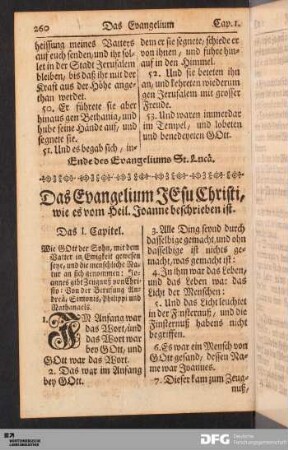 260 Das Evangelium Cap. 1.
heissung meines Vatters
auf euch senden, und ihr sol-
let in der Stadt Jerusalem
bleiben, bis daß ihr mit der
Kraft aus der Höhe ange-
than werdet.
50. Er führete sie aber
hinaus gen Bethania, und
hube seine Hände auf, und
segnete sie.
51. Und es begab sich, in-
dem er sie segnete, schiede er
von ihnen, und fuhre hin-
auf in den Himmel.
52. Und sie beteten ihn
an, und kehreten wiederum
gen Jerusalem mit grosser
Freude.
53. Und waren immerdar
im Tempel, und lobeten
und benedeyeten GOtt.
Ende des Evangeliums St. Lucä.
Das Evangelium JEsu Christi,
wie es vom Heil. Joanne beschrieben ist.
Das 1. Capitel.
Wie GOtt der Sohn, mit dem
Vatter in Ewigkeit gewesen
seye, und die menschliche Na-
tur an sich genommen: Jo-
annes gibt Zeugnuß von Chri-
sto: Von der Beruffung An-
dreä, Simonis, Philippi und
Nathanaels.
1. IM Anfang war
das Wort, und
das Wort war
bey GOtt, und
GOtt war das Wort.
2. Das war im Anfang
bey GOtt.
3. Alle Ding seynd durch
dasselbige gemacht, und ohn
dasselbige ist nichts ge-
macht, was gemacht ist:
4. In ihm war das Leben,
und das Leben war das
Licht der Menschen:
5. Und das Licht leuchtet
in der Finsternuß, und die
Finsternuß habens nicht
begriffen.
6. Es war ein Mensch von
GOtt gesand, dessen Na-
me war Joannes.
7. Dieser kam zum Zeug-
nuß,
DFG Deutsche
Forschungsgemeinschaft